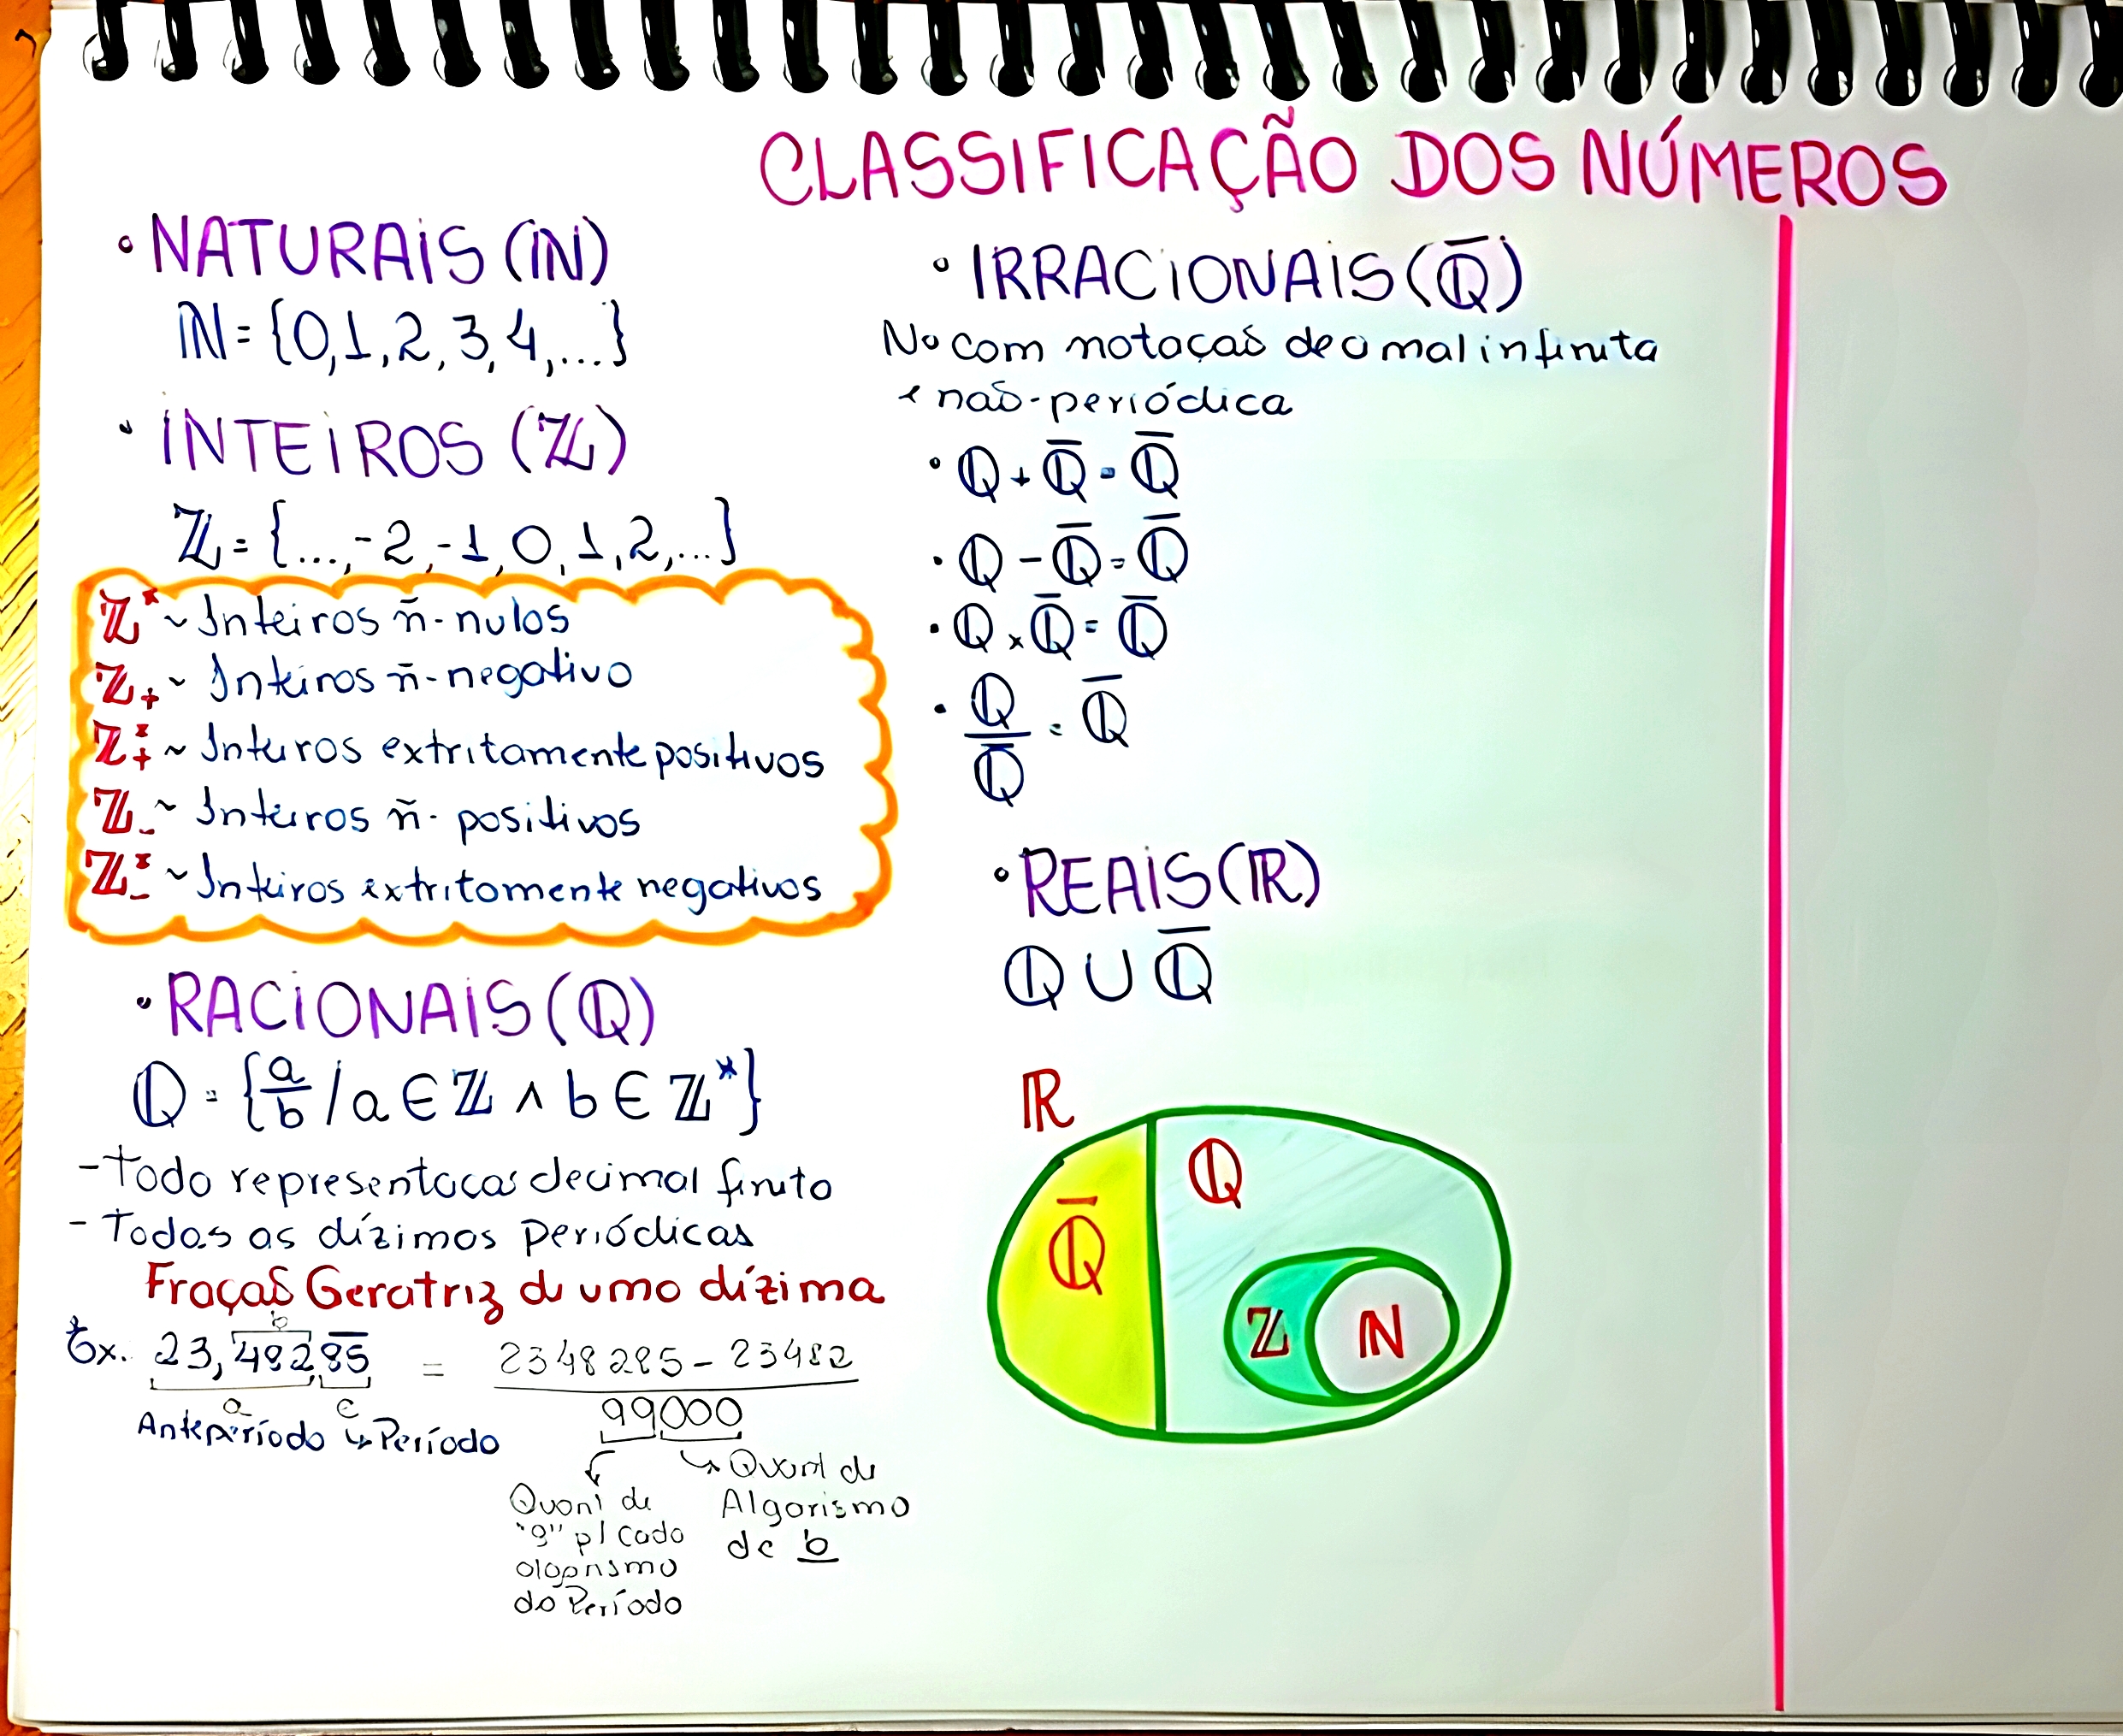 CLASSIFICAÇÃO DOS NÚMEROS
• NATURAIS (ℕ)
ℕ = {0,1,2,3,4,...}
• INTEIROS (ℤ)
ℤ = {...,-2,-1,0,1,2,...}
ℤ* ~ Inteiros ñ-nulos
ℤ₊ ~ Inteiros ñ-negativo
ℤ*₊ ~ Inteiros extritamente positivos
ℤ₋ ~ Inteiros ñ-positivos
ℤ*₋ ~ Inteiros extritamente negativos
• RACIONAIS (ℚ)
ℚ = {a/b / a ∈ ℤ ∧ b ∈ ℤ*}
- Todo representação decimal finito
- Todas as dízimas periódicas
Fração Geratriz de uma dízima
b
Ex. 23,48285 = 2348285 - 23482
99000
a c
Anteperíodo ↳ Período
Quant de
"9" p/ Cada
algorismo
do Período
↳ Quant de
Algorismo
de b
• IRRACIONAIS (ℚ̅)
No com notação decimal infinita
e não-periódica
• ℚ + ℚ̅ = ℚ̅
• ℚ - ℚ̅ = ℚ̅
• ℚ x ℚ̅ = ℚ̅
• ℚ/ℚ̅ = ℚ̅
• REAIS (ℝ)
ℚ ∪ ℚ̅
ℝ
ℚ
ℚ̅
ℤ ℕ